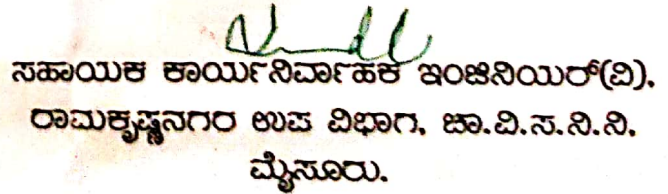 ಸಹಾಯಕ ಕಾರ್ಯನಿರ್ವಾಹಕ ಇಂಜಿನಿಯರ್(ವಿ).
ರಾಮಕೃಷ್ಣನಗರ ಉಪ ವಿಭಾಗ. ಚಾ.ವಿ.ಸ.ನಿ.ನಿ.
ಮೈಸೂರು.